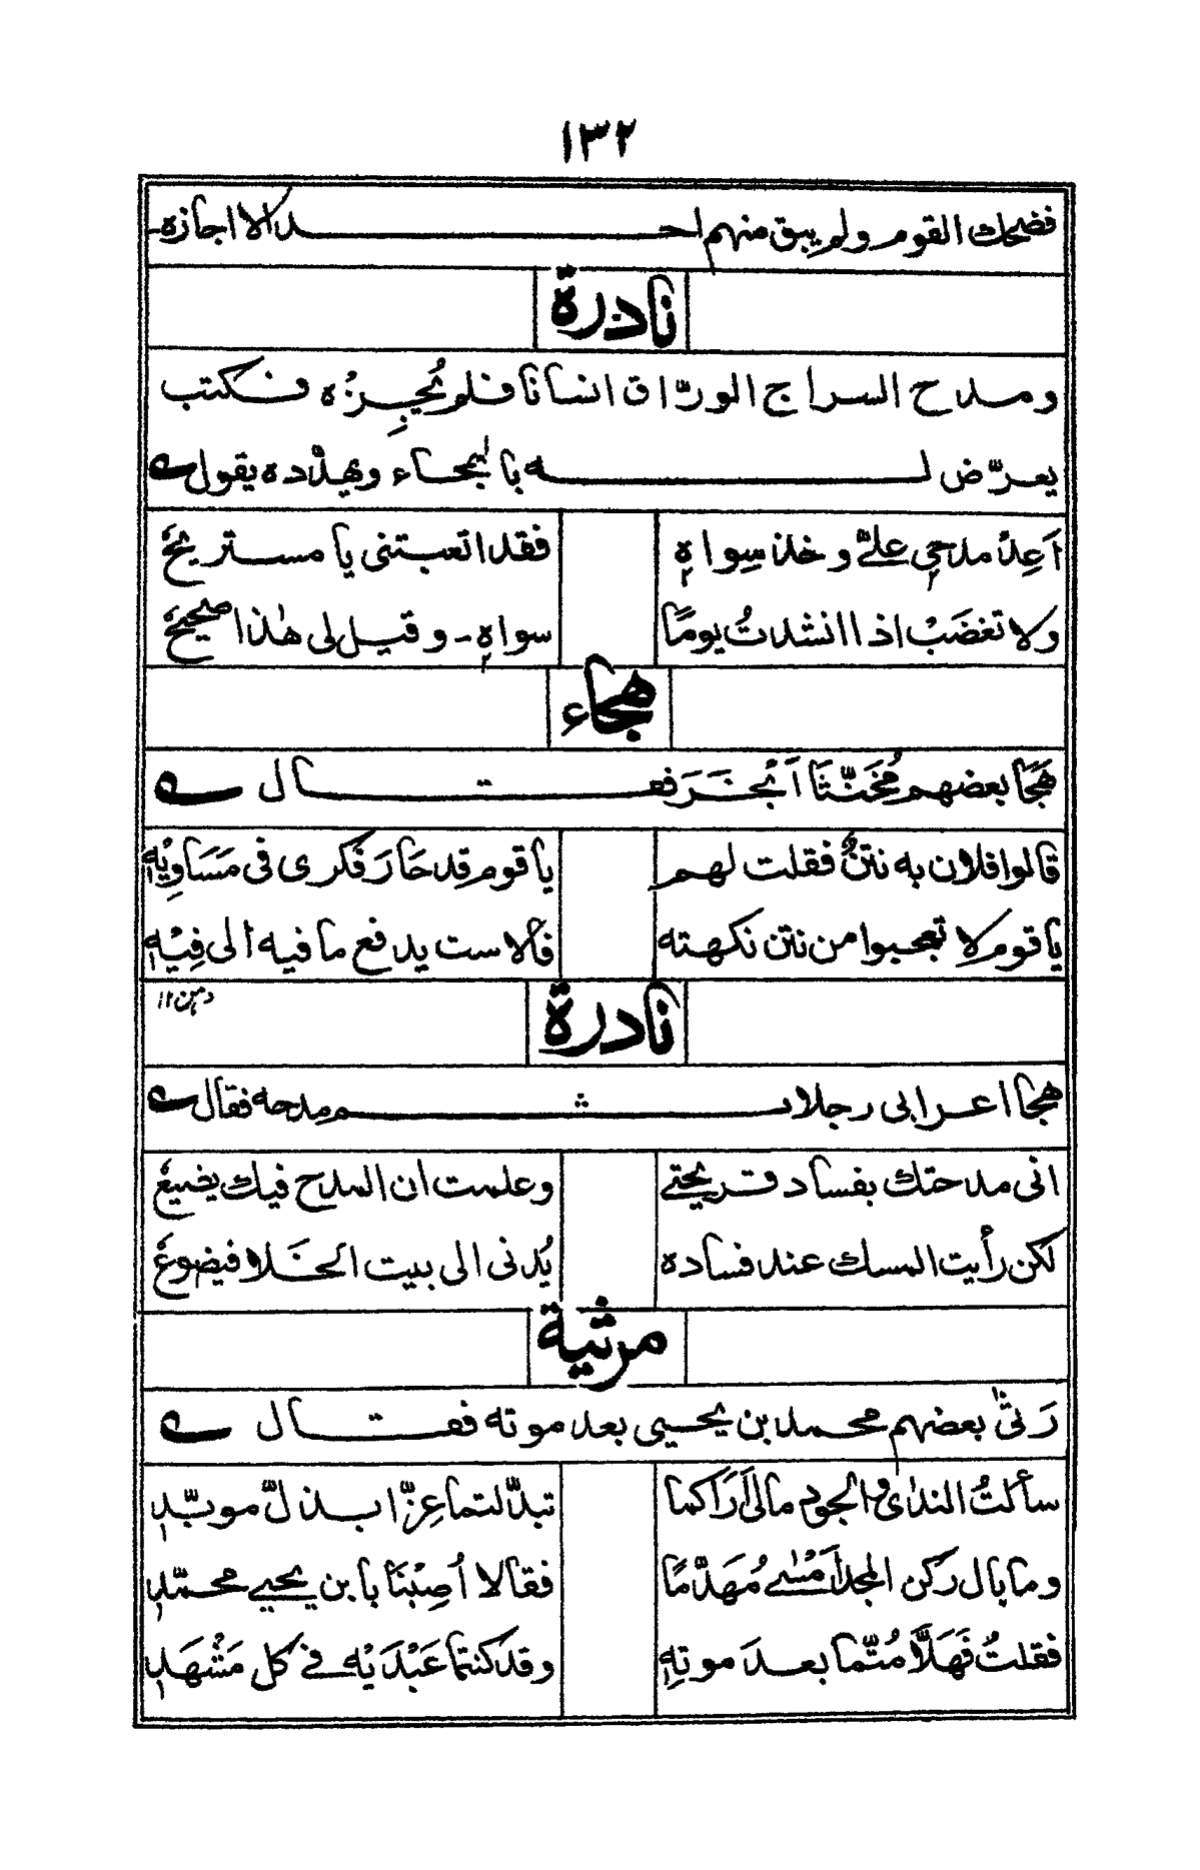 ١٣٢
فضحك القوم ولم يبق منهم احد الا اجازه۔
نادرة
ومدح السراج الورّاق انسانا فلم يُجِزْه فكتب
يعرّض له بالهجاء ويهدّده يقول
اَعِدْ مدحي عليّ وخذ سِواهٖ فقد اتعبتنی يا مستريحُ
ولا تغضَبْ اذا انشدتُ يومًا سواهٖ۔ وقيل لی هٰذا صحيحُ
هجاء
هَجَا بعضهم مُخَنَّثًا اَبْخَرَ فقال
قالوا فلان به نتنٌ فقلت لهم يا قوم قد حَارَ فكری فی مَسَاوِيْهِ
يا قوم لا تعجبوا من نتن نكهته فالاست يدفع ما فيه الی فِيْهِ
دہن ١٢
نادرة
هجا اعرابی رجلا ثم مدحه فقال
انی مدحتك بفساد قريحتي وعلمت ان المدح فيك يضيعُ
لكن رأيت المسك عند فساده يُدنی الی بيت الخَلا فيضوعُ
مرثية
رَثٰی بعضهم محمد بن يحيی بعد موته فقال
سألتُ الندٰی والجود مالی اَرَاكما تبدّلتما عِزًّا بذلّ موبّدٖ
وما بال ركن المجد اَمْسٰے مُهَدَّمًا فقالا اُصِبْنَا بابن يحيے محمّدٖ
فقلتُ فَهَلَّا مُتّما بعدَ موتهٖ وقد كنتما عَبْدَيْه فے كل مَشْهَدٖ